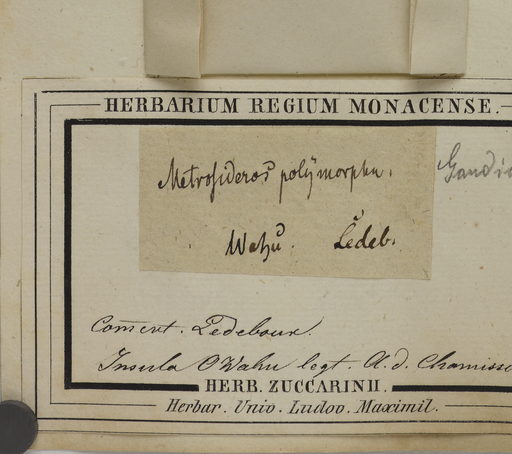 HERBARIUM REGIUM MONACENSE.
Metrosideros polÿmorpha.
Wahu. Ledeb.
Comert. Ledebour.
Insula OWahu legt. A. d. Chamisso
HERB. ZUCCARINII.
Herbar. Univ. Ludov. Maximil.